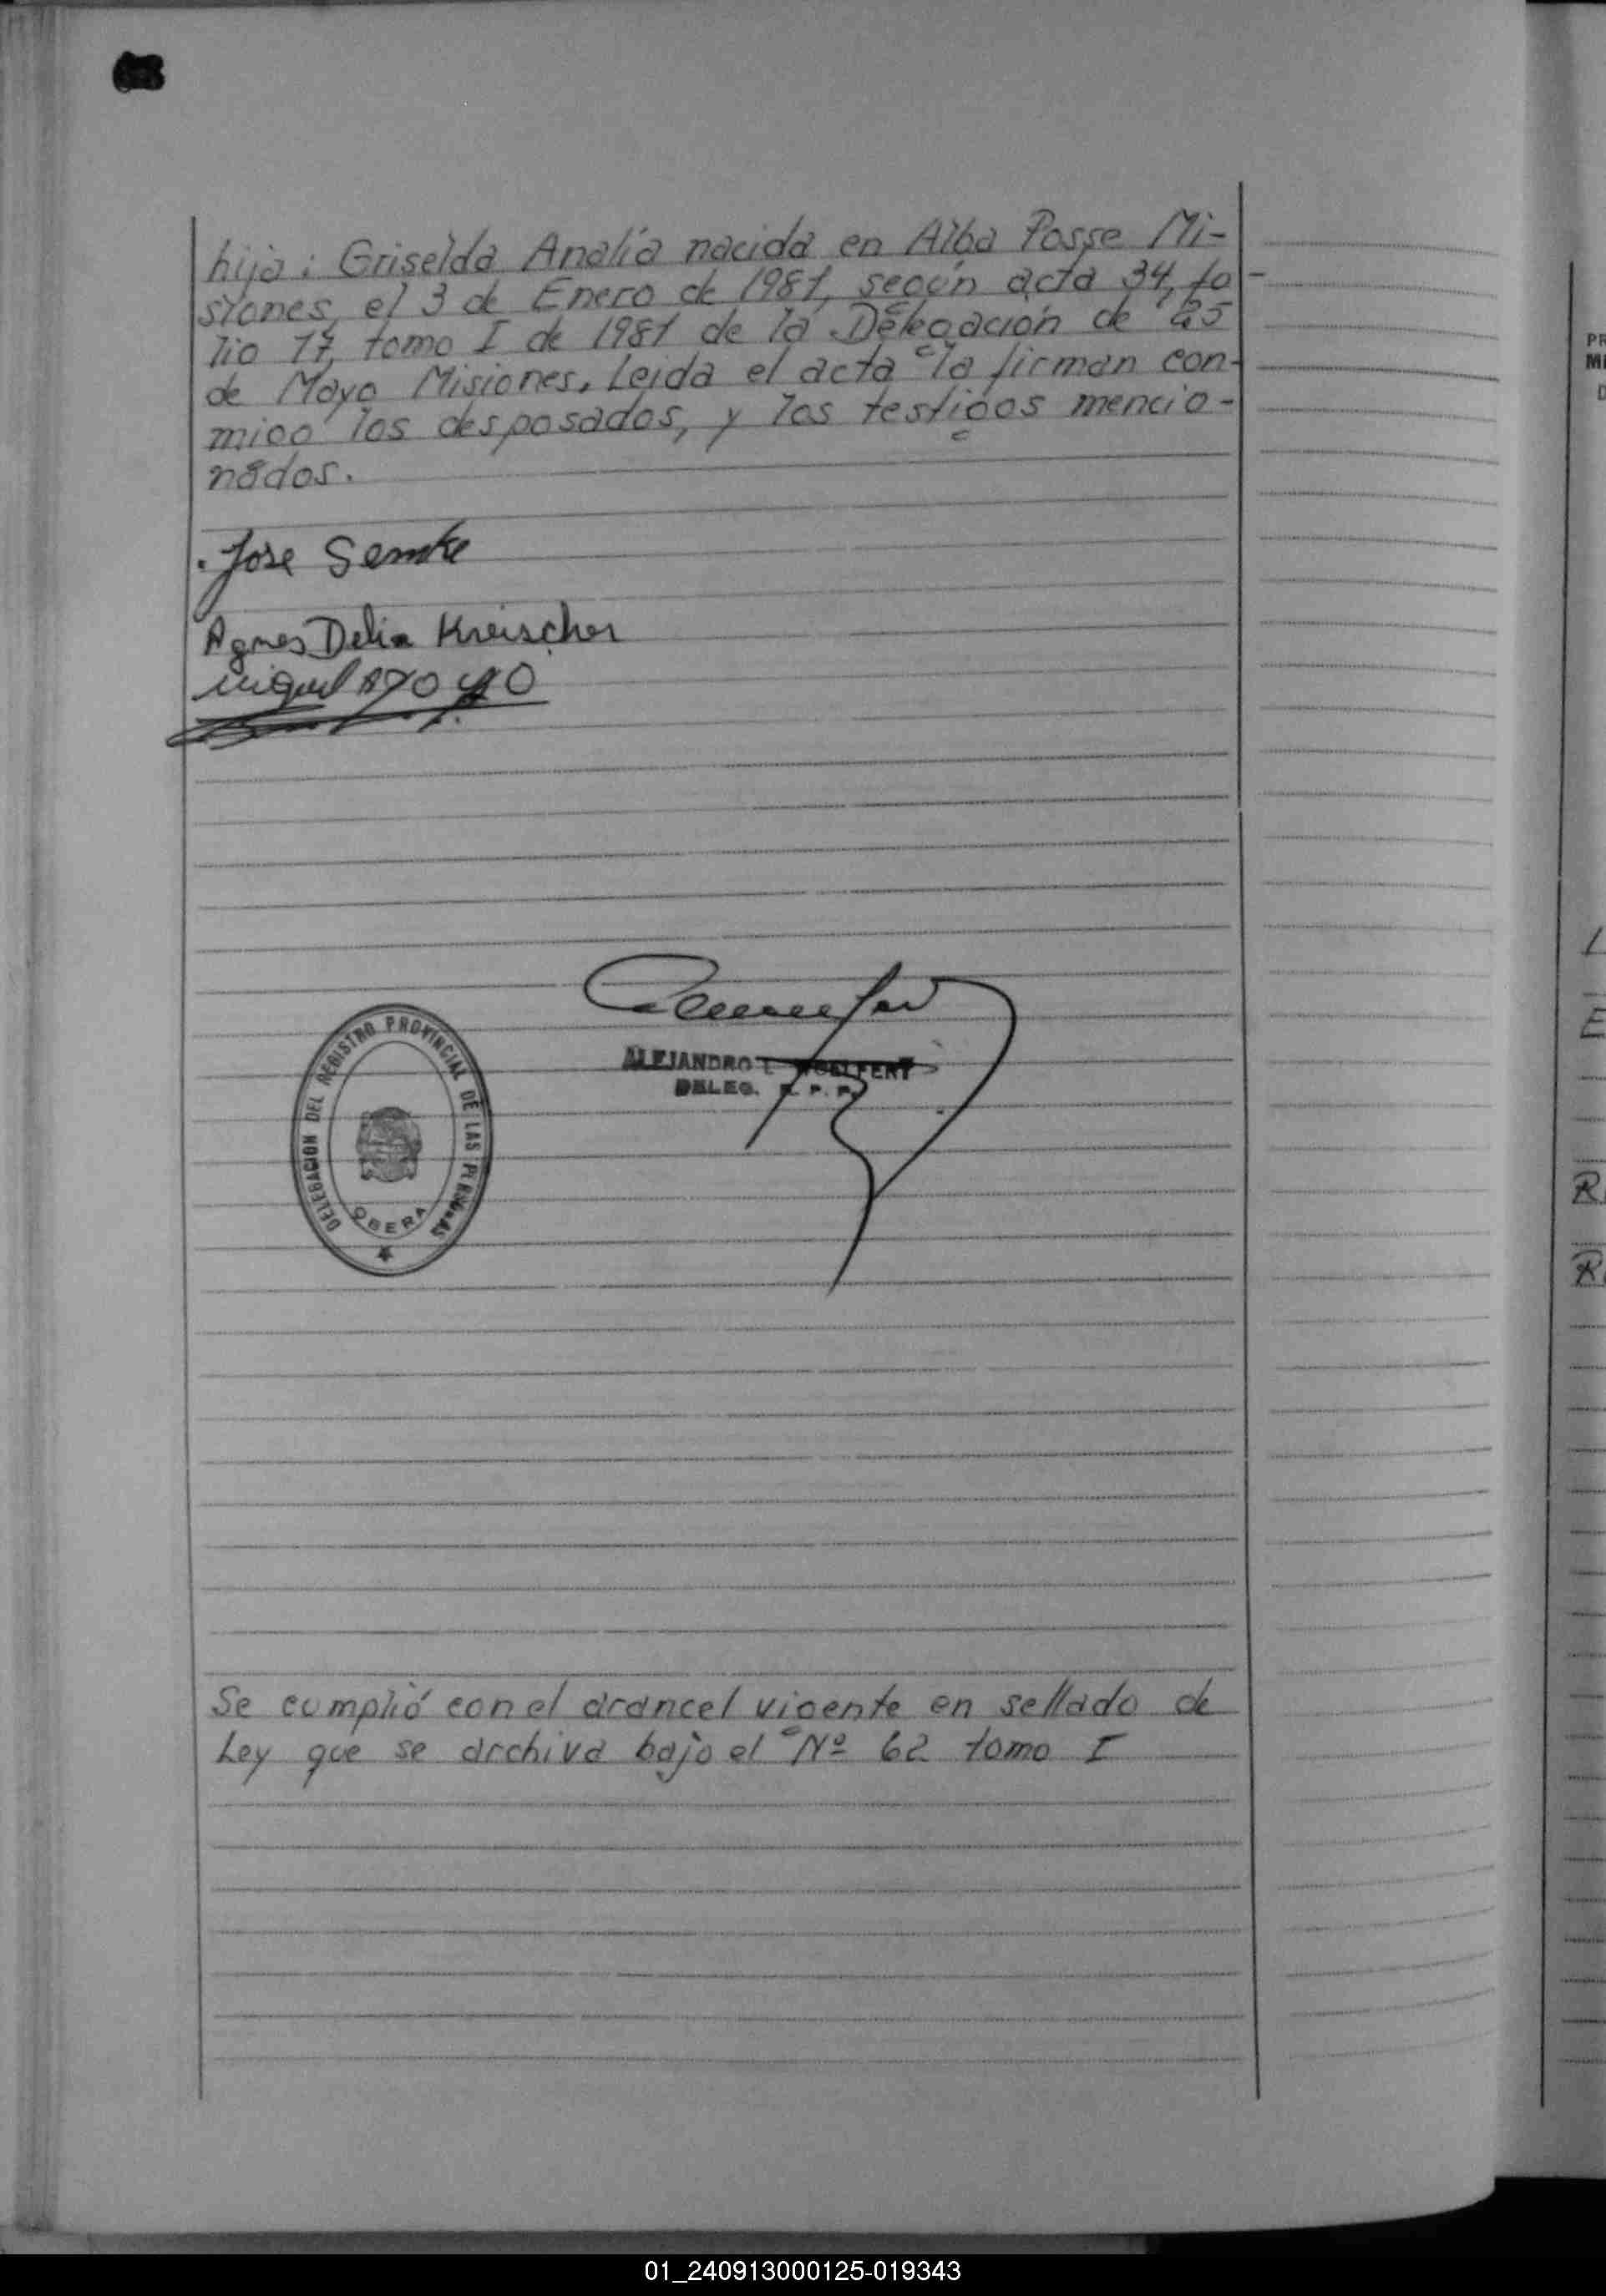 hija: Griselda Analía nacida en Alba Posse Mi-
siones, el 3 de Enero de 1981, según acta 34, fo-
lio 17, tomo I de 1981 de la Delegación de 25
de Mayo Misiones. Leida el acta la firman con-
migo los desposados, y los testigos mencio-
nados.
Jose Semke
Agnes Delia Kreischer
Miguel
ALEJANDRO
DELEG. R. P. P.
DELEGACION DEL REGISTRO PROVINCIAL DE LAS PERSONAS
OBERA
Se cumplió con el arancel vigente en sellado de
Ley que se archiva bajo el Nº 62 tomo I
01_240913000125-019343